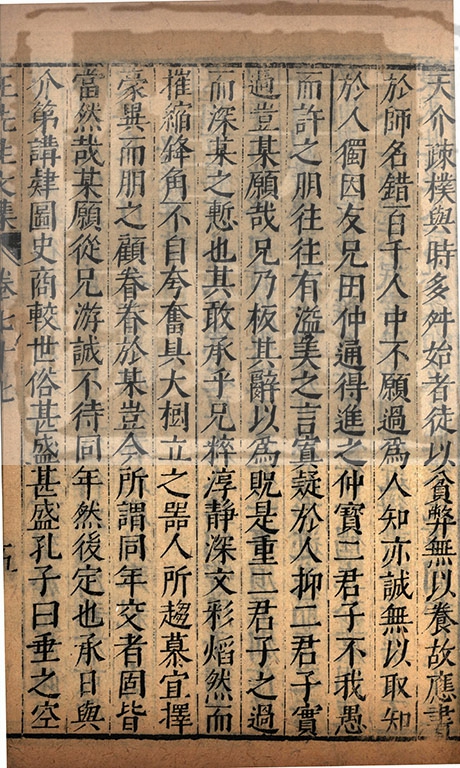 天介疎樸與時多舛始者徒以貧弊無以養故應書
於師名錯百千人中不願過爲人知亦誠無以取知
於人獨因友兄田仲通得進之仲寶二君子不我愚
而許之朋往往有溢美之言寘疑於人抑二君子實
過豈某願哉兄乃板其辭以爲貺是重二君子之過
而深某之慙也其敢承乎兄粹淳静深文彩焰然而
摧縮鋒角不自夸奮具大樹立之器人所趨慕宜擇
豪異而朋之顧眷眷於某豈今所謂同年交者固皆
當然哉某願從兄游誠不待同年然後定也承日與
介第講肄圖史商較世俗甚盛甚盛孔子曰垂之空
王先生文集 卷七十七